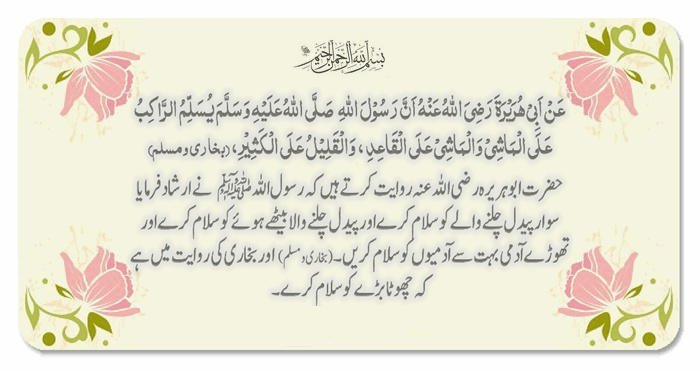 بِسْمِ اللهِ الرَّحْمٰنِ الرَّحِيْمِ
عَنْ أَبِيْ هُرَيْرَةَ رَضِيَ اللهُ عَنْهُ أَنَّ رَسُوْلَ اللهِ صَلَّى اللهُ عَلَيْهِ وَسَلَّمَ يُسَلِّمُ الرَّاكِبُ
عَلَى الْمَاشِيْ وَالْمَاشِيْ عَلَى الْقَاعِدِ، وَالْقَلِيْلُ عَلَى الْكَثِيْرِ، (بخاری و مسلم)
حضرت ابو ہریرہ رضی اللہ عنہ روایت کرتے ہیں کہ رسول اللہ ﷺ نے ارشاد فرمایا
سوار پیدل چلنے والے کو سلام کرے اور پیدل چلنے والا بیٹھے ہوئے کو سلام کرے اور
تھوڑے آدمی بہت سے آدمیوں کو سلام کریں۔ (بخاری و مسلم) اور بخاری کی روایت میں ہے
کہ چھوٹا بڑے کو سلام کرے۔